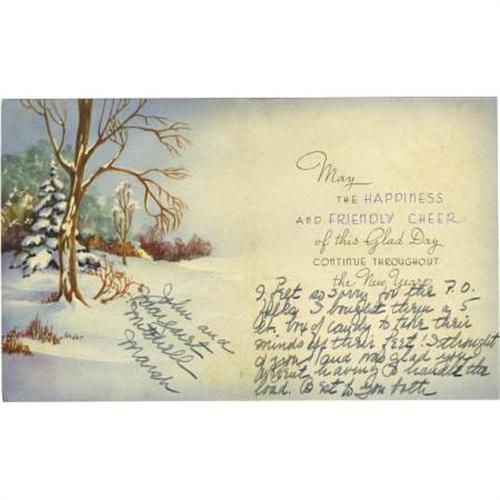 May
THE HAPPINESS
AND FRIENDLY CHEER
of this Glad Day
CONTINUE THROUGHOUT
the New Year
I felt so sorry for the P.O.
fellas I bought them a 5
lb. box of candy to take their
minds off their feet! I thought
of you and was glad you
weren't having to handle the
load. Best to you both
John and
Margaret
Mitchell
Marsh